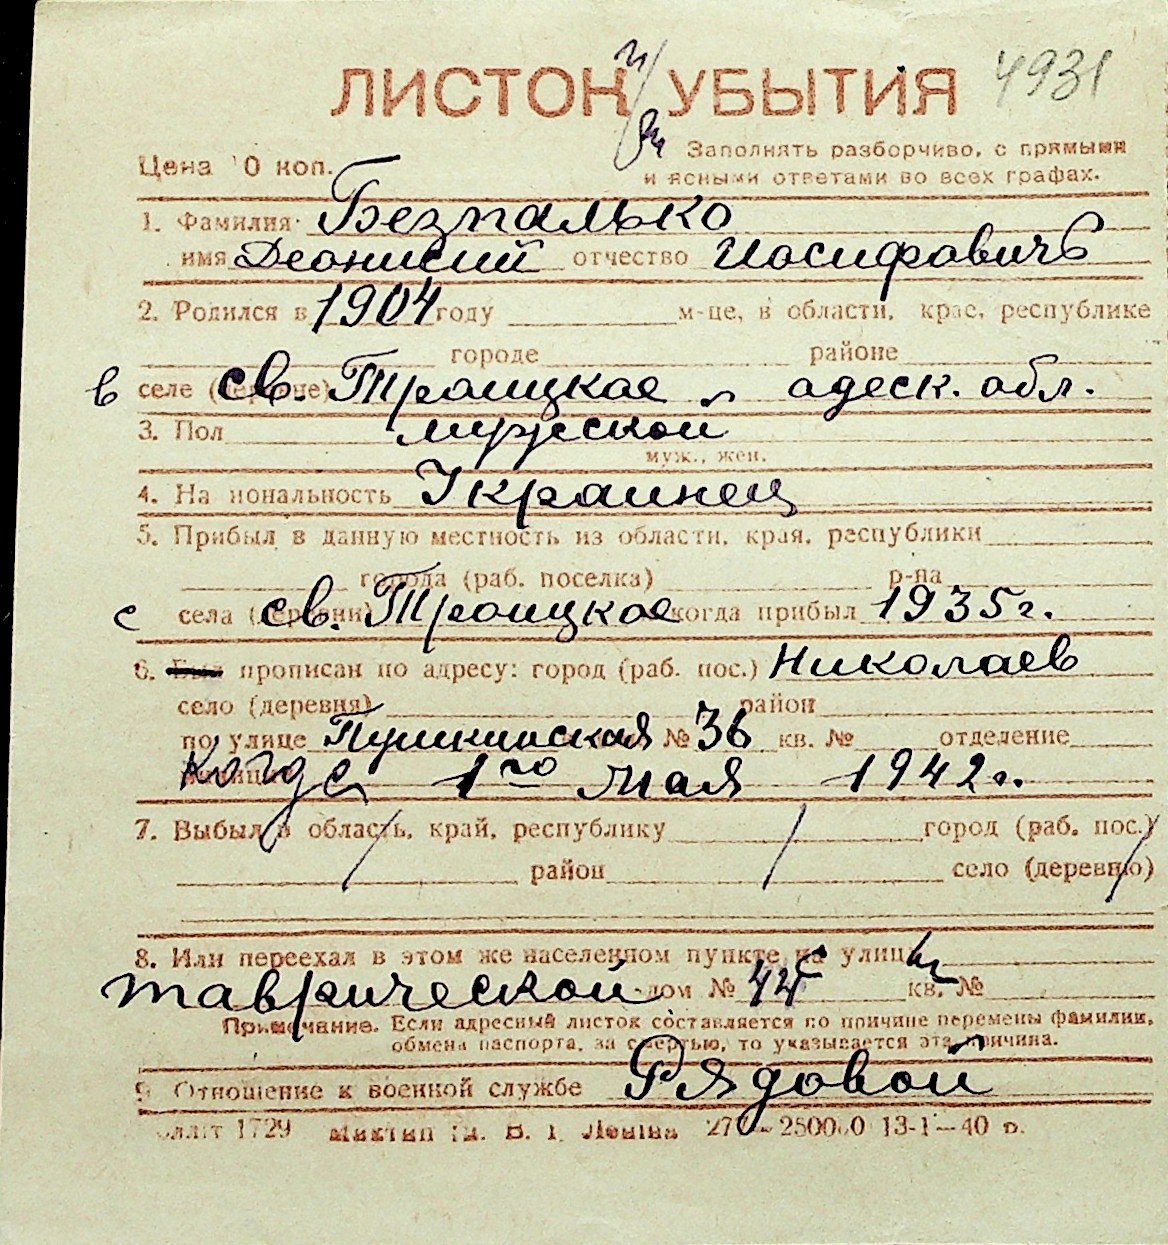 ЛИСТОК УБЫТИЯ 4931
Цена 10 коп.
Заполнять разборчиво, с прямыми
и ясными ответами во всех графах.
1. Фамилия Безпалько
имя Деонисий отчество Иосифовичъ
2. Родился в 1904 году м-це, в области, крае, республике
городе районе
в селе (деревне) св. Троицкое одеск. обл.
3. Пол мужской
муж., жен.
4. Национальность Украинец
5. Прибыл в данную местность из области, края, республики
города (раб. поселка) р-на
с села (деревни) св. Троицкое когда прибыл 1935 г.
6. прописан по адресу: город (раб. пос.) Николаев
село (деревня) район
по улице Пушкинская № 36 кв. № отделение
Когда 1го мая 1942 г.
7. Выбыл в область, край, республику город (раб. пос.)
район село (деревню)
8. Или переехал в этом же населенном пункте на улицу
таврической дом № 44 кв. №
Примечание. Если адресный листок составляется по причине перемены фамилии,
обмена паспорта, за смертью, то указывается эта причина.
9 Отношение к военной службе Рядовой
1729 им. В. І. Леніна 13-1-40 р.